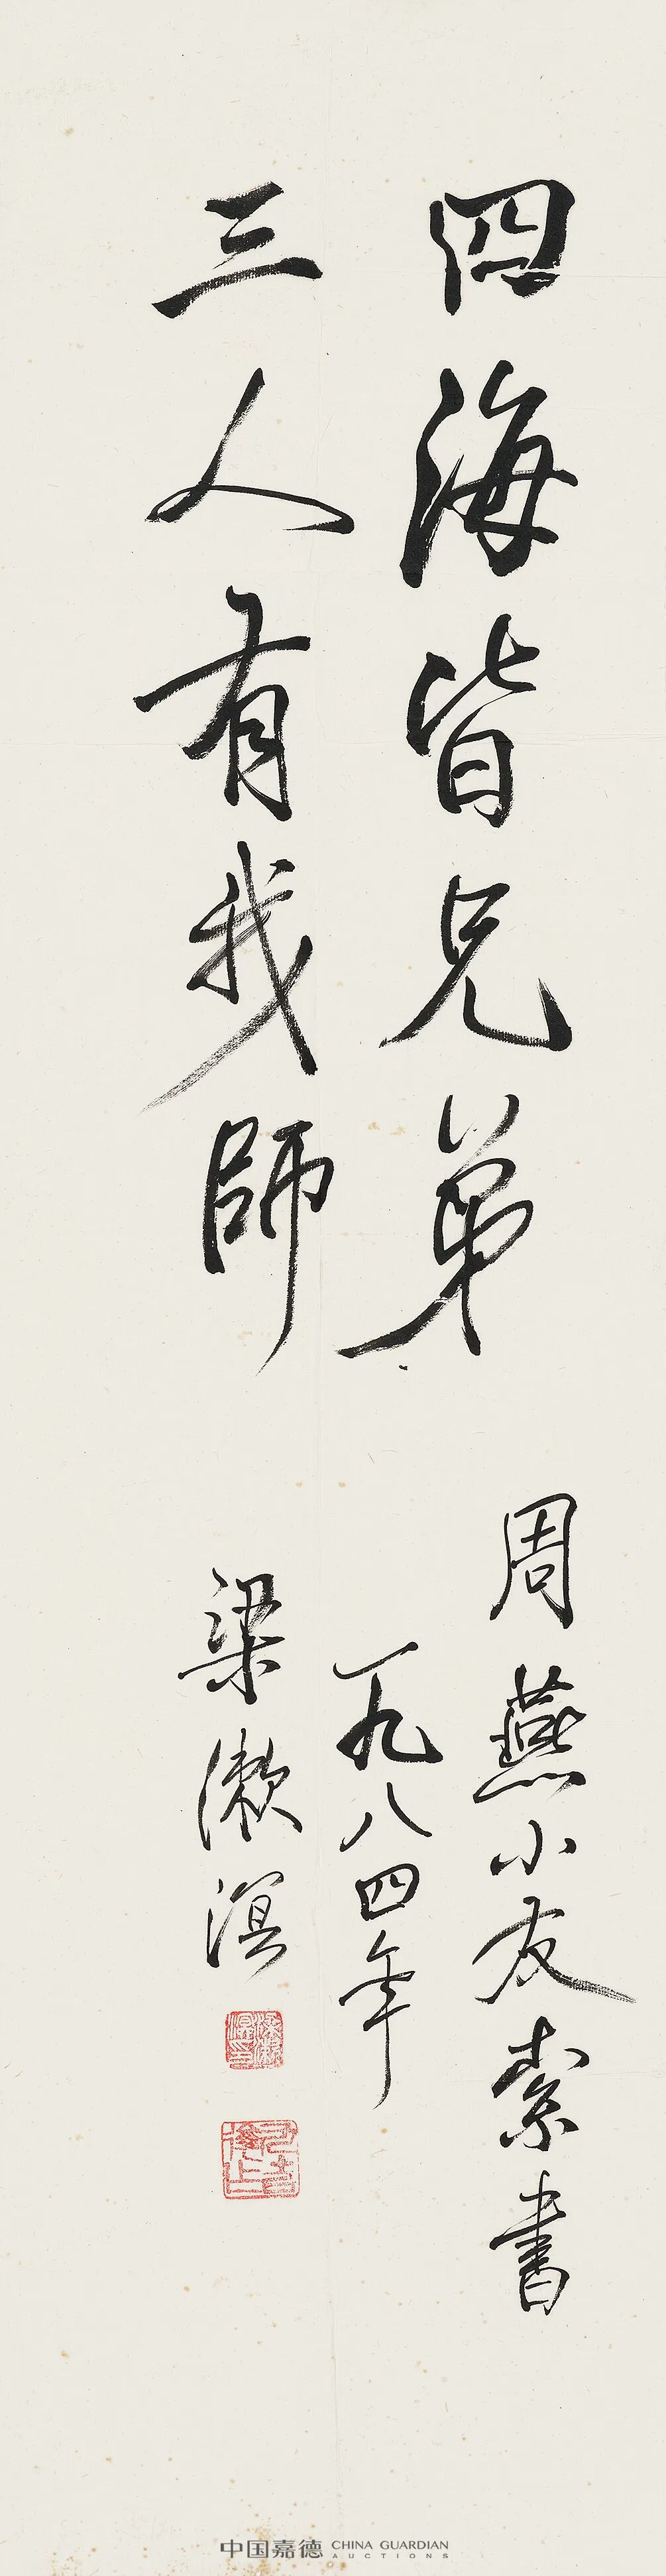 四海皆兄弟
三人有我師
周燕小友索書
一九八四年
梁漱溟
中国嘉德 CHINA GUARDIAN
AUCTIONS